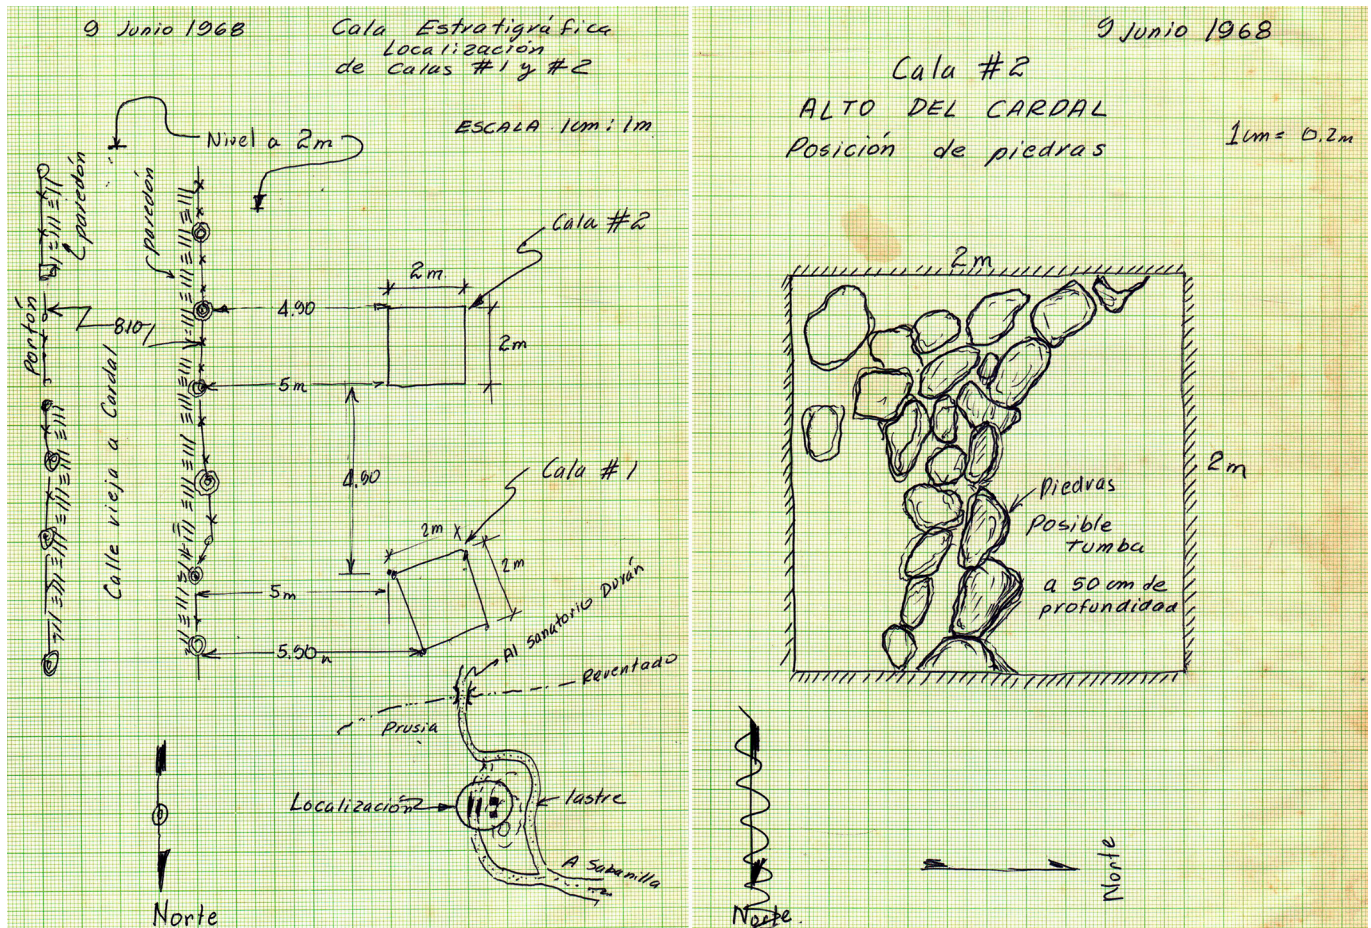 9 Junio 1968
Cala Estratigráfica
Localización
de Calas #1 y #2
ESCALA 1cm: 1m
Nivel a 2m
paredón
paredón
Cala #2
2m
4.90
2m
Portón
810
5m
Calle vieja a Cardal
4.90
Cala #1
2m
2m
5m
5.50m
Al sanatorio Durán
Reventado
Prusia
Localización
lastre
A Sabanilla
Norte
9 Junio 1968
Cala #2
ALTO DEL CARDAL
Posición de piedras
1cm = 0.2m
2m
2m
Piedras
Posible
tumba
a 50 cm de
profundidad
Norte
Norte